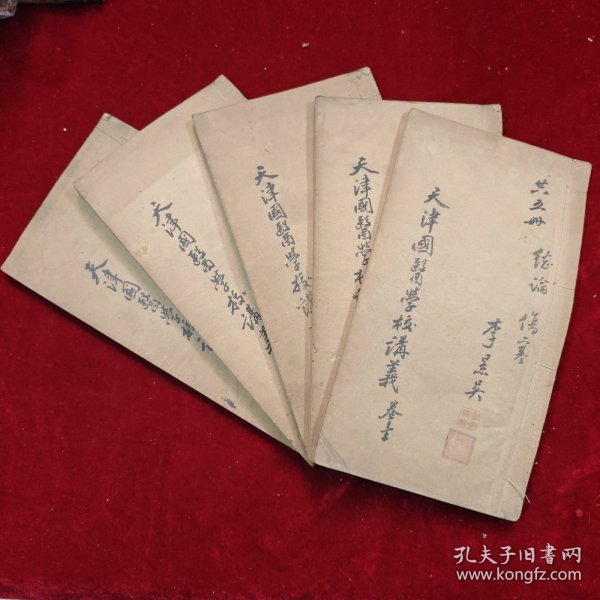 共五册 總論 傷寒
李景吴
天津國醫學校講義 卷壹
天津國醫學校
天津國醫學校講
天津國醫學校講義
天津國醫學校
孔夫子旧书网
www.kongfz.com